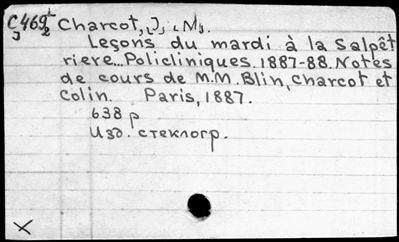 C469 Charcot, J. M.
Leçons du mardi à la Salpêt
riere... Policliniques. 1887-88. Notes
de cours de M.M. Blin, Charcot et
Colin. Paris, 1887.
638 p
Изд. стеклогр.